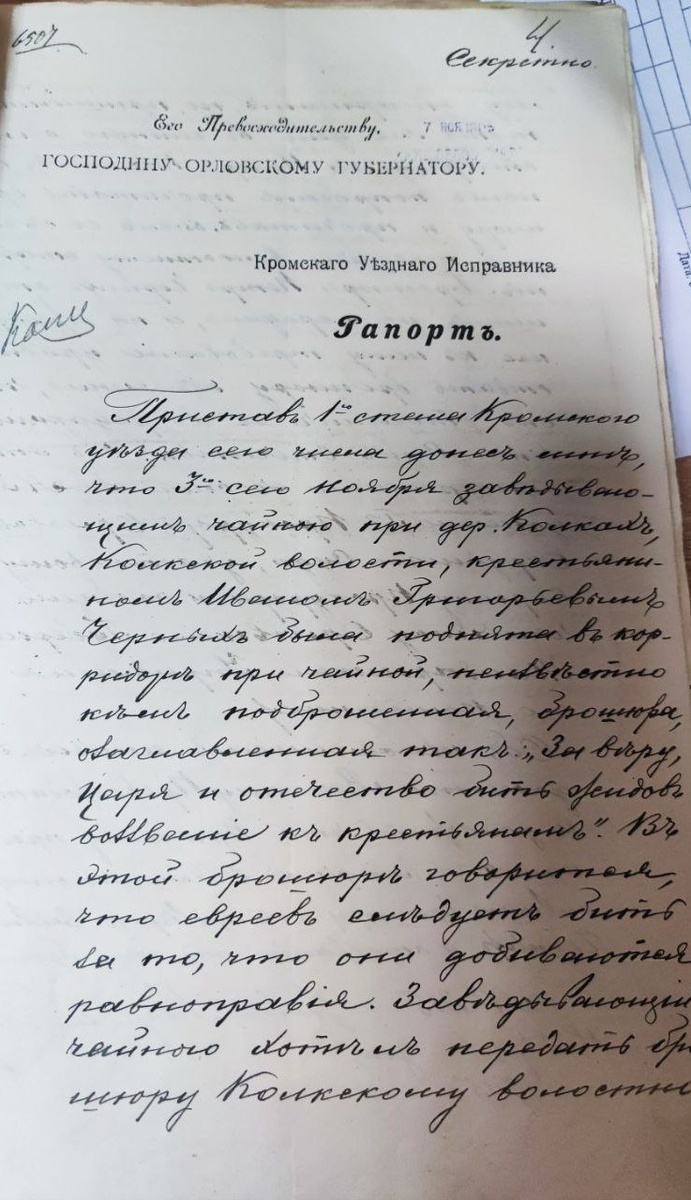 6507
4
Секретно
Его Превосходительству,
7 НОЯ
ГОСПОДИНУ ОРЛОВСКОМУ ГУБЕРНАТОРУ.
Кромскаго Уѣзднаго Исправника
Рапортъ.
Приставъ 1го стана Кромского
уѣзда сего числа донесъ мнѣ,
что 3го сего ноября завѣдываю-
щимъ чайною при дер. Колкахъ,
Колкской волости, крестьяни-
номъ Иваномъ Григорьевымъ
Черныхъ была поднята въ кор-
ридорѣ при чайной, неизвѣстно
кѣмъ подброшенная, брошюра,
озаглавленная такъ: „За вѣру,
Царя и отечество бить жидовъ
воззваніе къ крестьянамъ". Въ
этой брошюрѣ говорится,
что евреевъ слѣдуетъ бить
за то, что они добиваются
равноправія. Завѣдывающій
чайною хотѣлъ передать бро
шюру Колкскому волостн
Дата.